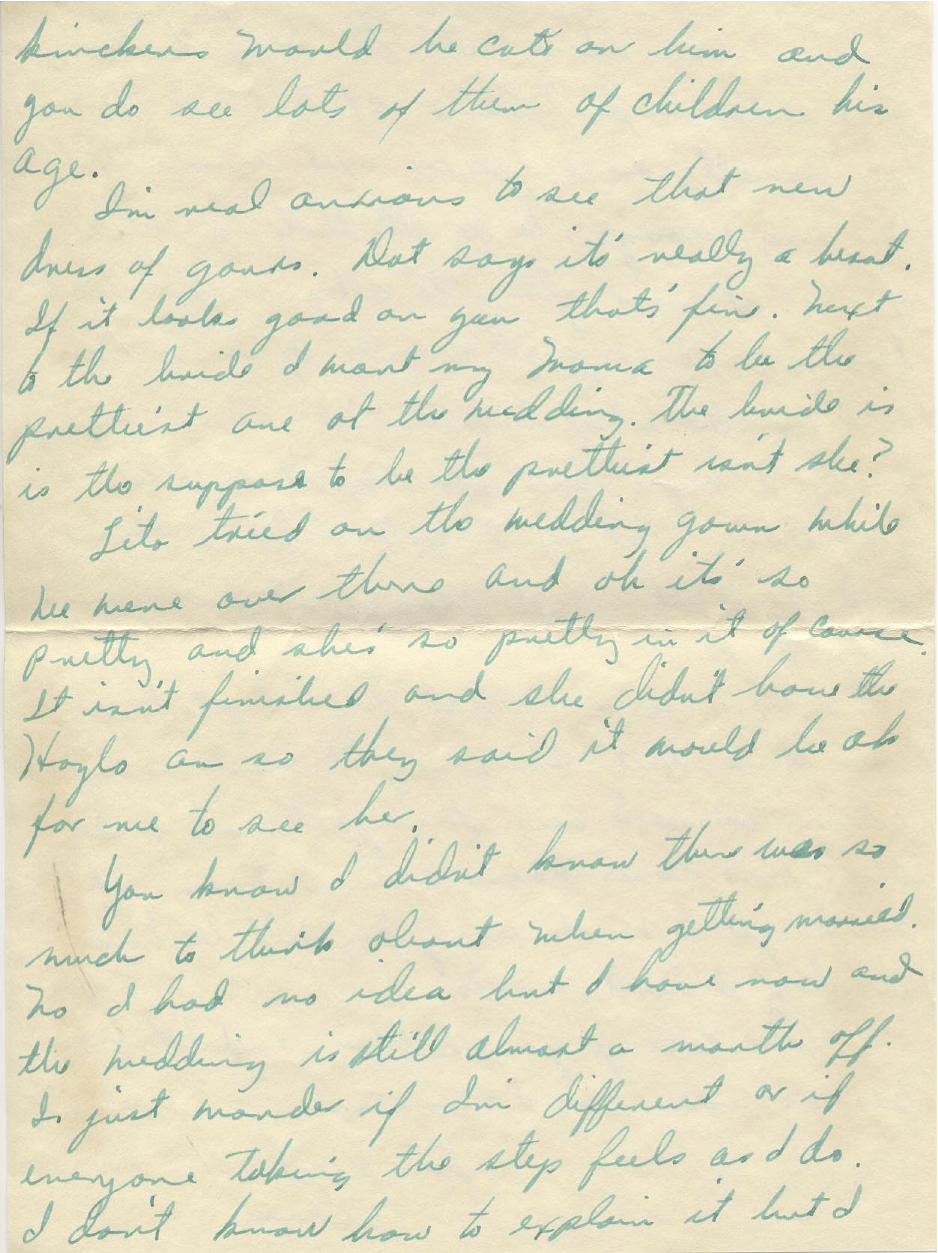 knickers would be cute on him and
you do see lots of them of children his
age.
I'm real anxious to see that new
dress of yours. Dot says it's really a beaut.
If it looks good on you that's fine. Next
to the bride I want my Moma to be the
prettiest one at the wedding. The bride is
is the suppose to be the prettiest isn't she?
tried on the wedding gown while
we were over there and oh it's so
pretty and she's so pretty in it of course.
It isn't finished and she didn't have the
on so they said it would be ok
for me to see her.
You know I didn't know there was so
much to think about when getting married.
No I had no idea but I have now and
the wedding is still almost a month off.
I just wonder if I'm different or if
everyone taking the step feels as I do.
I don't know how to explain it but I